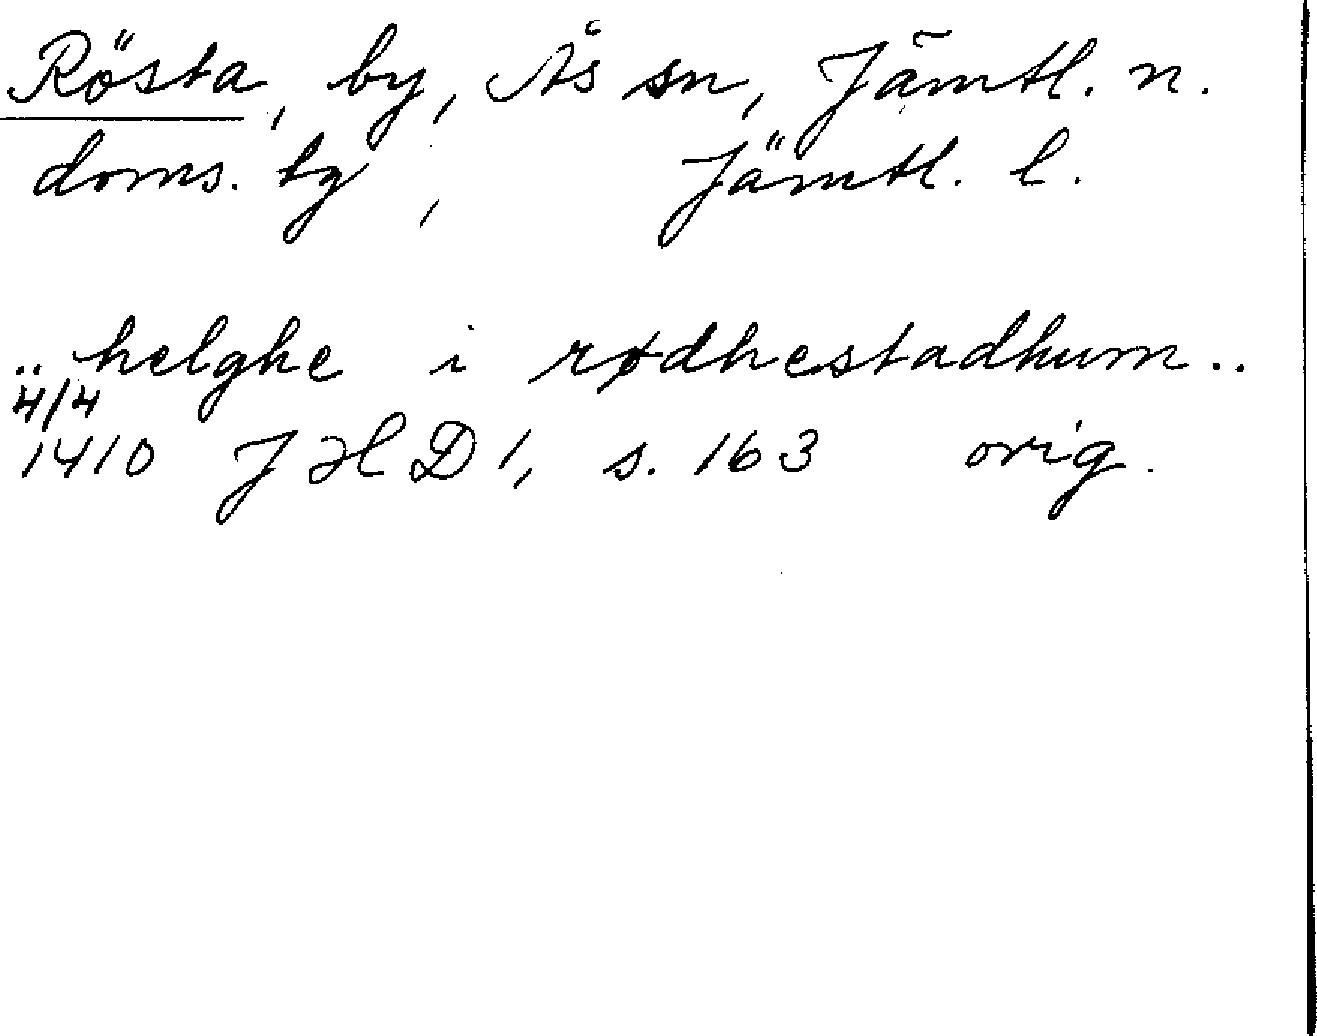 Rösta, by, Ås sn, Jämtl. n.
doms. bg, Jämtl. l.
.. helghe i rødhestadhum ..
4/4
1410 JHD 1, s. 163 orig.